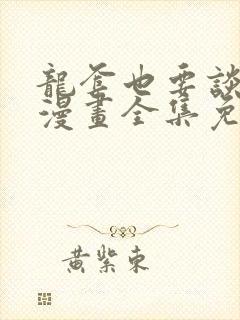 龍套也要談
漫畫全集免
黃紫東